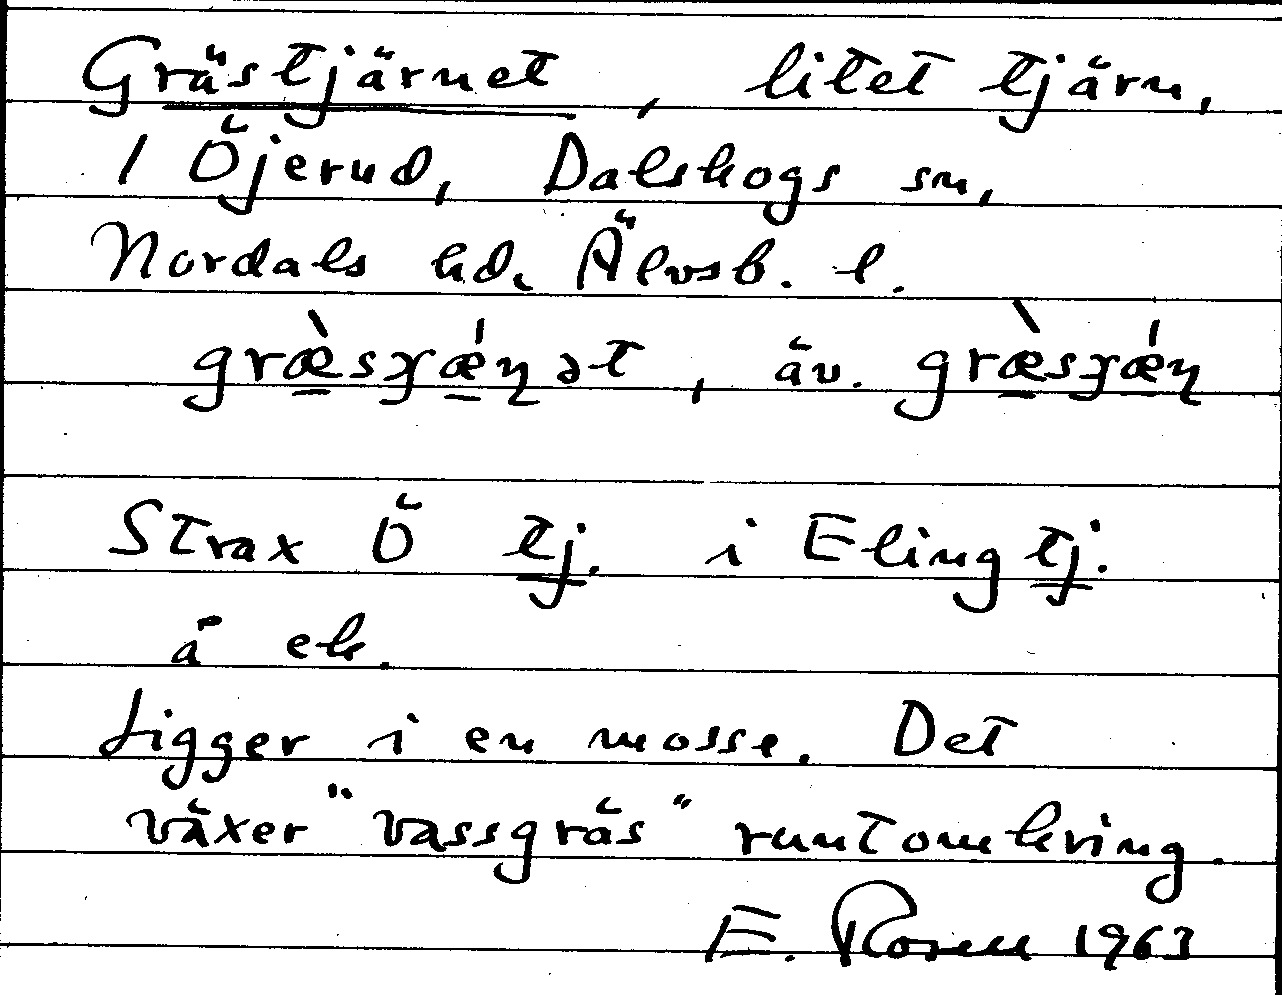 Grästjärnet, litet tjärn,
1 Öjerud, Dalskogs sn,
Nordals hd, Älvsb. l.
græ̀sɟǽɳət, äv. græ̀sɟǽɳ
Strax Ö tj. i Elingtj.
å ek.
Ligger i en mosse. Det
växer "vassgräs" runtomkring.
E. Rosell 1963